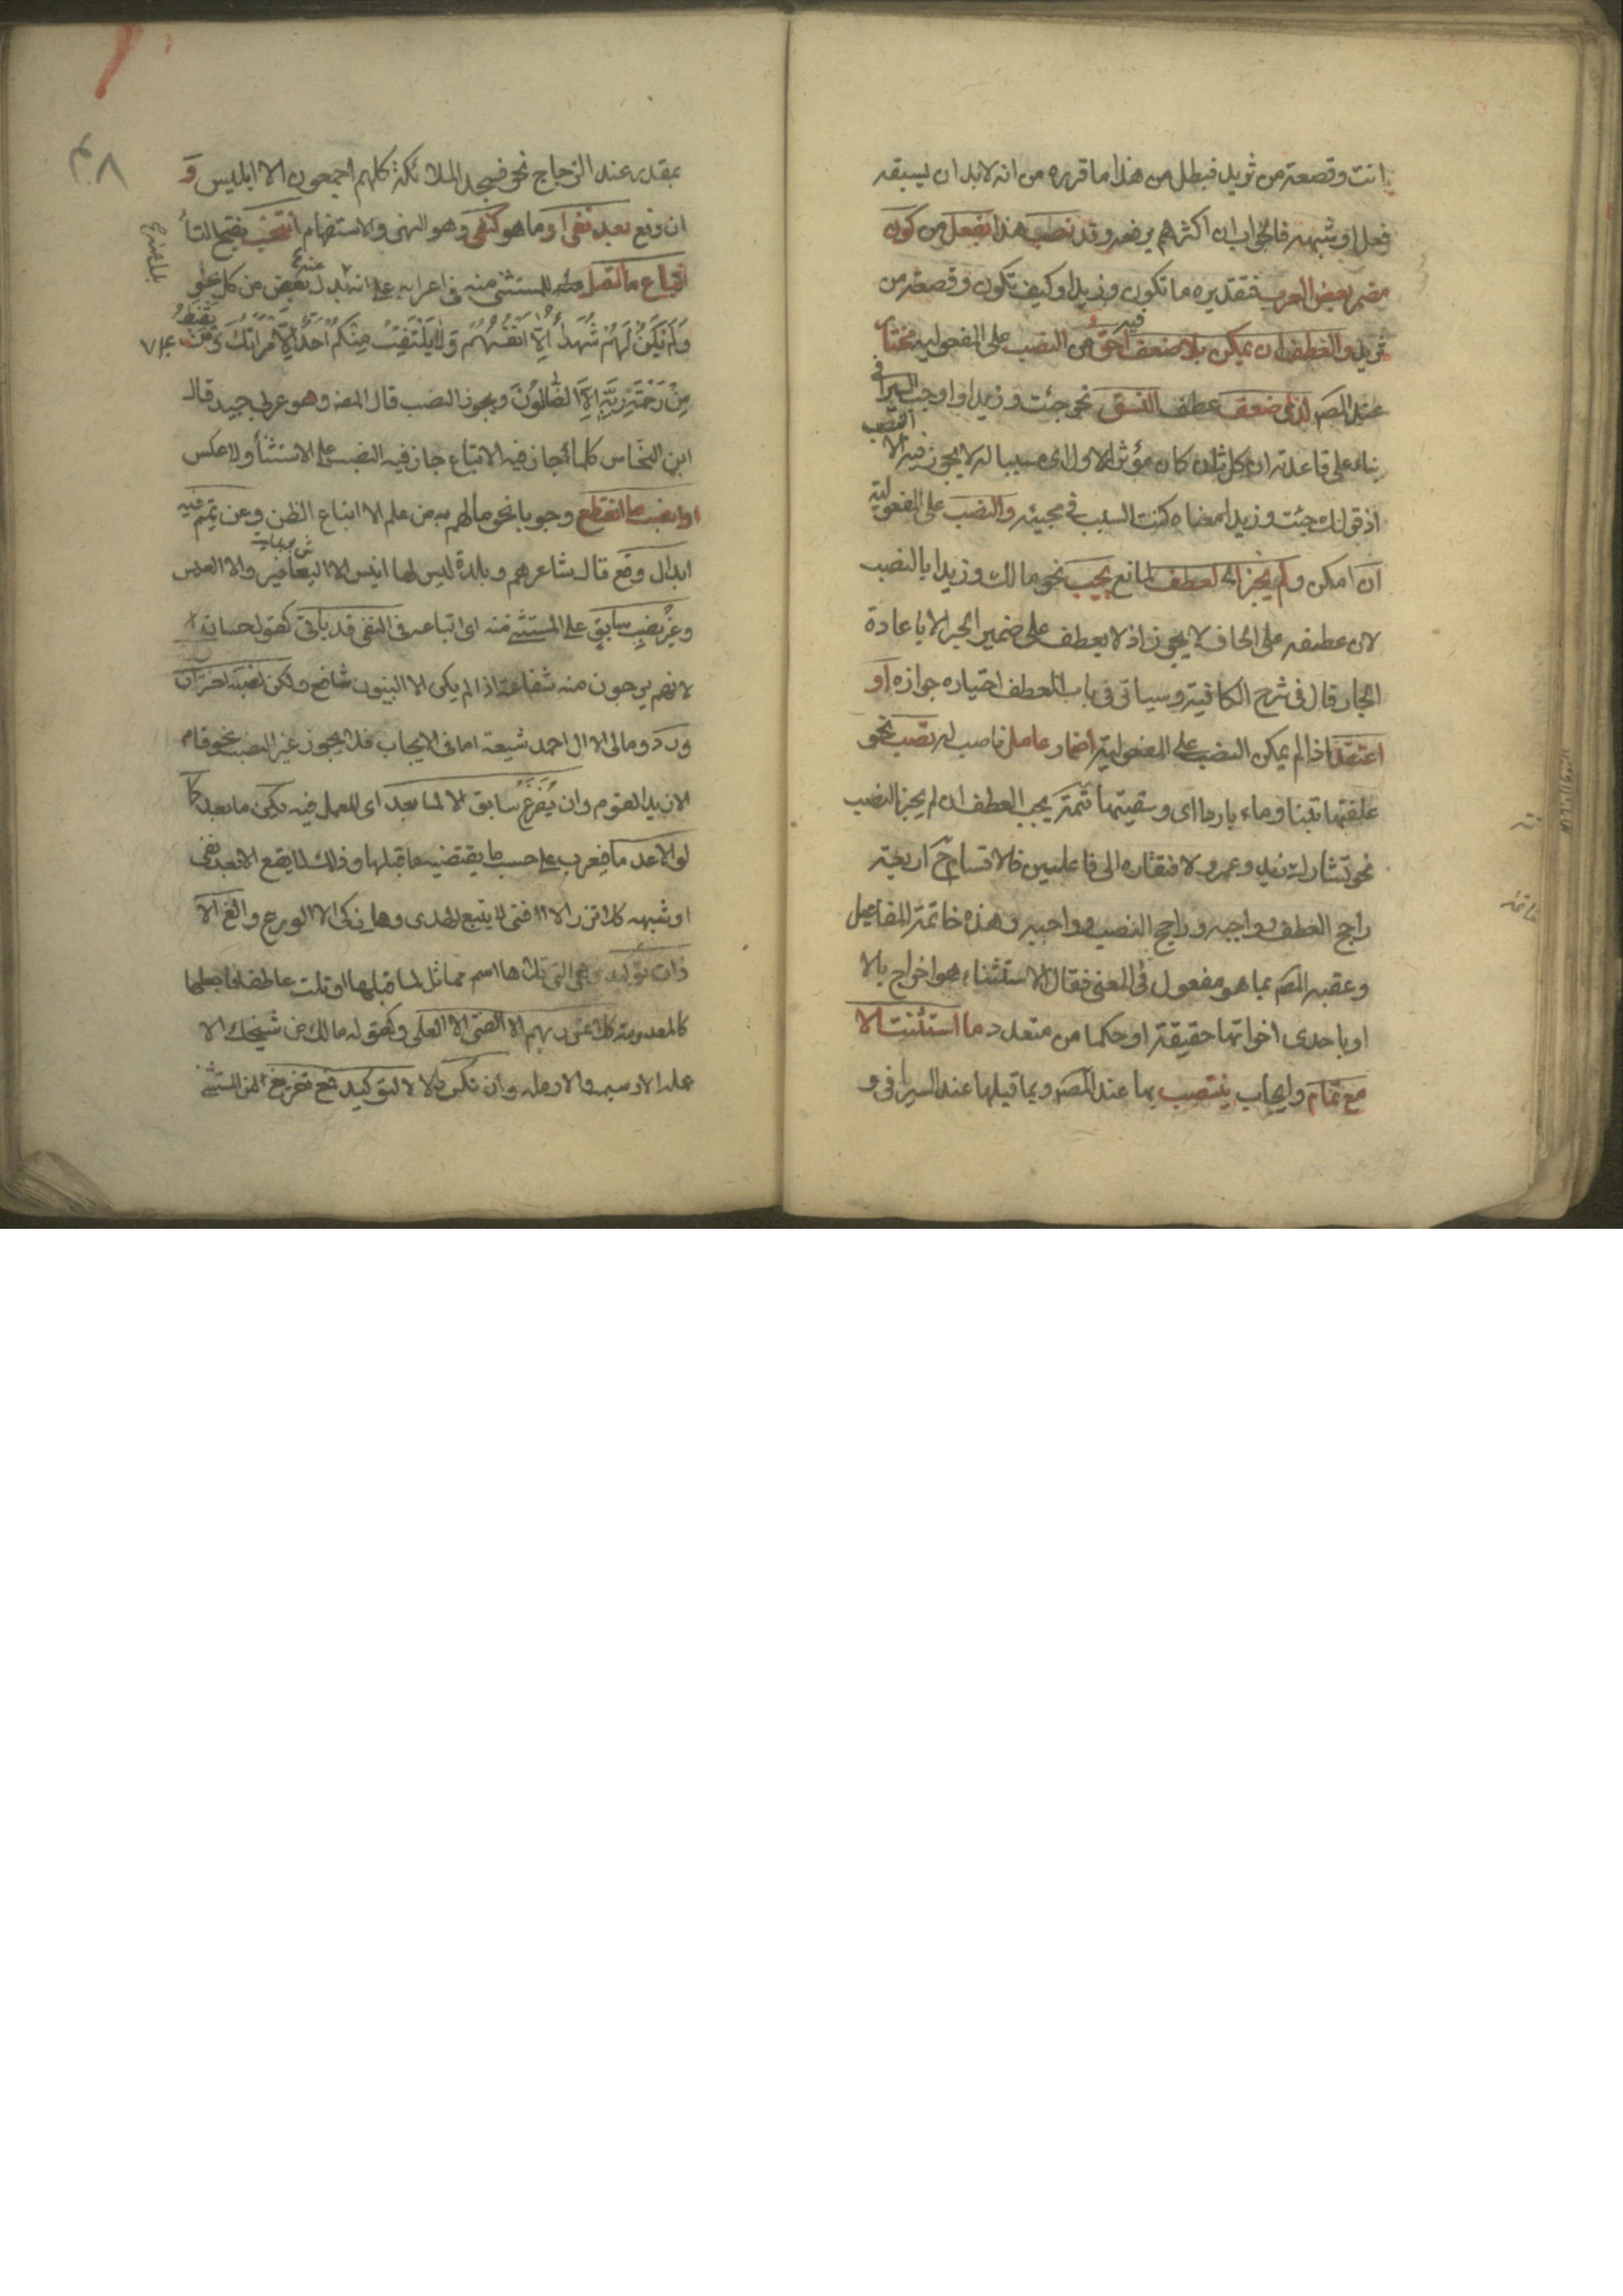 انت وقصعة من ثريد فبطل من هذا ما قرره من انه لابد ان يسبقه
فعل او شبهه فالجواب ان اكثرهم يرفعه وقد نصب هذا بفعل من كون
مضمر بعض العرب فتقديره ما تكون وزيدا وكيف تكون وقصعة من
ثريد والعطف ان يمكن بلا ضعف احق فيه من النصب على المفعولية مختار
عند المص لدى ضعف عطف النسق نحو جئت وزيدا واوجب السيرافى
النصب
بناء على قاعدته ان كل ثان كان مؤثر الاول اى مسببا له لا يجوز فيه الا
اذ قولك جئت وزيدا معناه كنت السبب فى مجيئه والنصب على المفعولية
ان امكن ولم يجز العطف لمانع يجب نحو مالك وزيدا بالنصب
لان عطفه على الكاف لا يجوز اذ لا يعطف على ضمير الجر الا باعادة
الجار قال فى شرح الكافية وسياتى فى باب العطف اختياره جوازه او
اعتقد اذا لم يمكن النصب على المفعولية اضمار عامل ناصب له تصب نحو
علفتها تبنا وماء باردا اى وسقيتها تتمة يجب العطف ان لم يجز النصب
نحو تشارك زيد وعمرو لافتقاره الى فاعلين فالاقسام ح اربعة
راجح العطف وواجبه وراجح النصب وواجبه وهذه خاتمة المفاعيل
وعقبه المص بما هو مفعول فى المعنى فقال الاستثناء هو اخراج بالا
او باحدى اخواتها حقيقة او حكما من متعدد ما استثنت الا
مع تمام وايجاب ينتصب بها عند المص وبما قبلها عند السيرافى و
بمقدر عند الزجاج نحو فسجد الملائكة كلهم اجمعون الا ابليس و
ان وقع بعد نفى او ما هو كنفى وهو النهى والاستفهام انتخب بفتح التاء
اتباع ما اتصل للمستثنى منه فى اعرابه على انه بدل بعض من كل نحو
ولم يكن لهم شهداء الا انفسهم ولا يلتفت منكم احد الا امراتك ومن يقنط
من رحمة ربه الا الضالون ويجوز النصب قال المص وهو عربى جيد قال
ابن النحاس كلما جاز فيه الاتباع جاز فيه النصب على الاستثناء ولا عكس
وانصب ما انقطع وجوبا نحو ما لهم به من علم الا اتباع الظن وعن تميم فيه
ابدال وقع قال شاعرهم وبلدة ليس لها انيس الا اليعافير والا العيس
وغير نصب سابق على المستثنى منه اى اتباعه فى النفى قد ياتى كقول حسان
لانهم يرجون منه شفاعة اذا لم يكن الا النبيون شافع ولكن نصبه اختر ان
ورد ومالى الا ال احمد شيعة اما فى الايجاب فلا يجوز غير النصب نحو قام
الا زيدا القوم وان يفرغ سابق الا لما بعد اى للعمل فيه يكن ما بعد كما
لو الا عدما فيعرب على حسب ما يقتضيه ما قبلها وذلك لا يقع الا بعد نفى
او شبهه كلا تزر الا فتى لا يتبع الهدى وهل زكى الا الورع والغ الا
ذات توكيد وهى التى تلاها اسم مماثل لما قبلها او تلت عاطفا فاجعلها
كالمعدومة كلا تمرر بهم الا الفتى الا العلى وكقوله مالك من شيخك الا
عمله الا رسيمه والا رمله وان تكرر الا لا لتوكيد فمع تفريغ من المستثنى